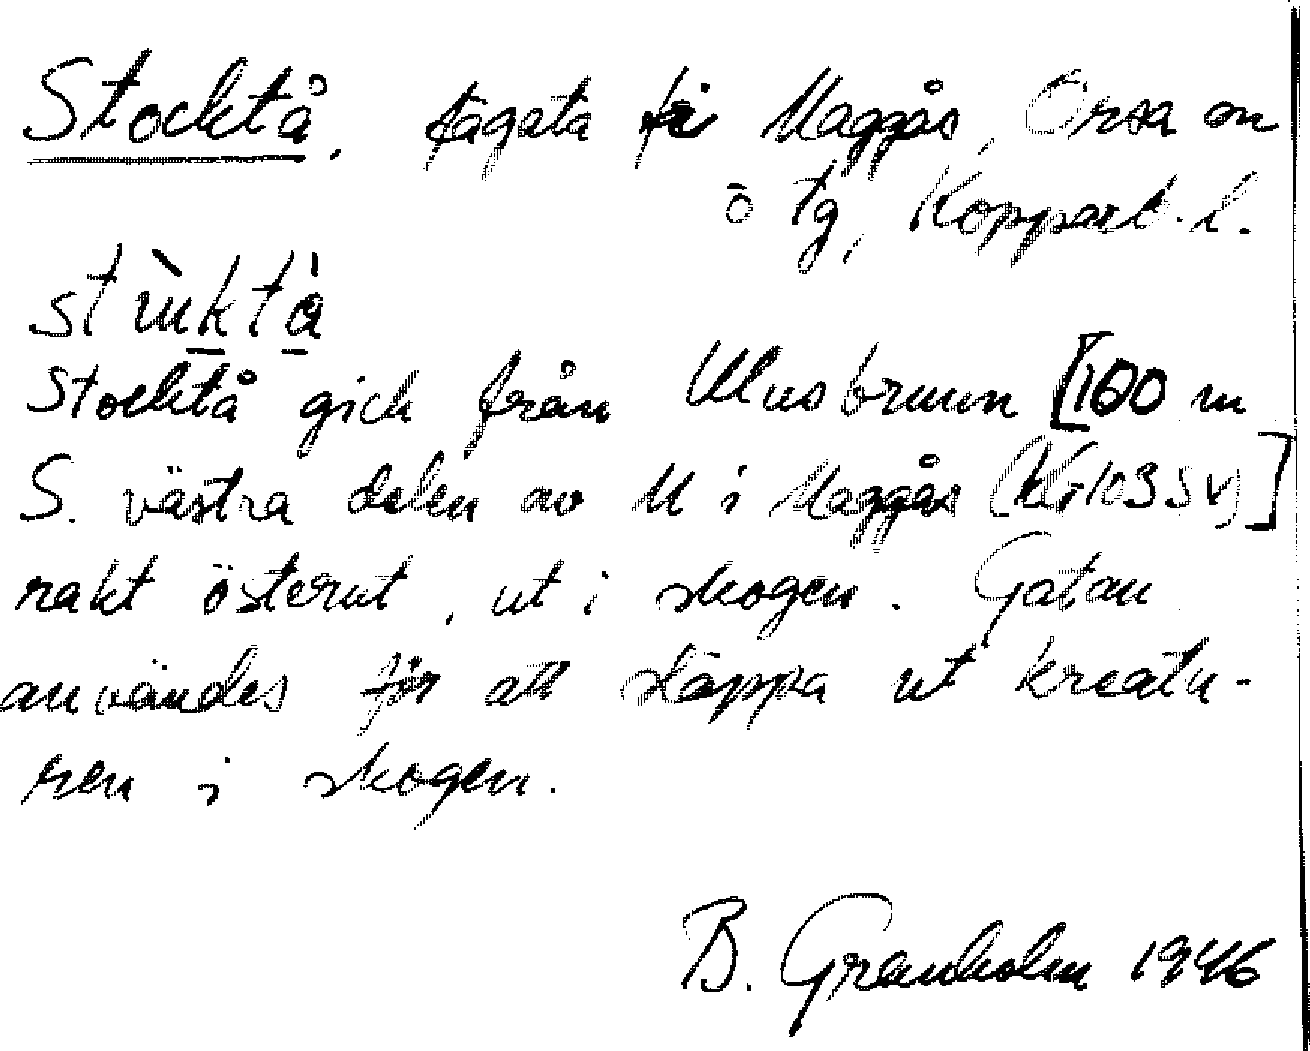 Stocktå, fägata i Maggås, Orsa sn
ö Tg, Kopparb. l.
stùktà
Stocktå gick från Musbrunn [100 m
S. västra delen av M i Maggås (Kr 103 SV)]
rakt österut, ut i skogen. Gatan
användes för att släppa ut kreatu-
ren i skogen.
B. Granholm 1946